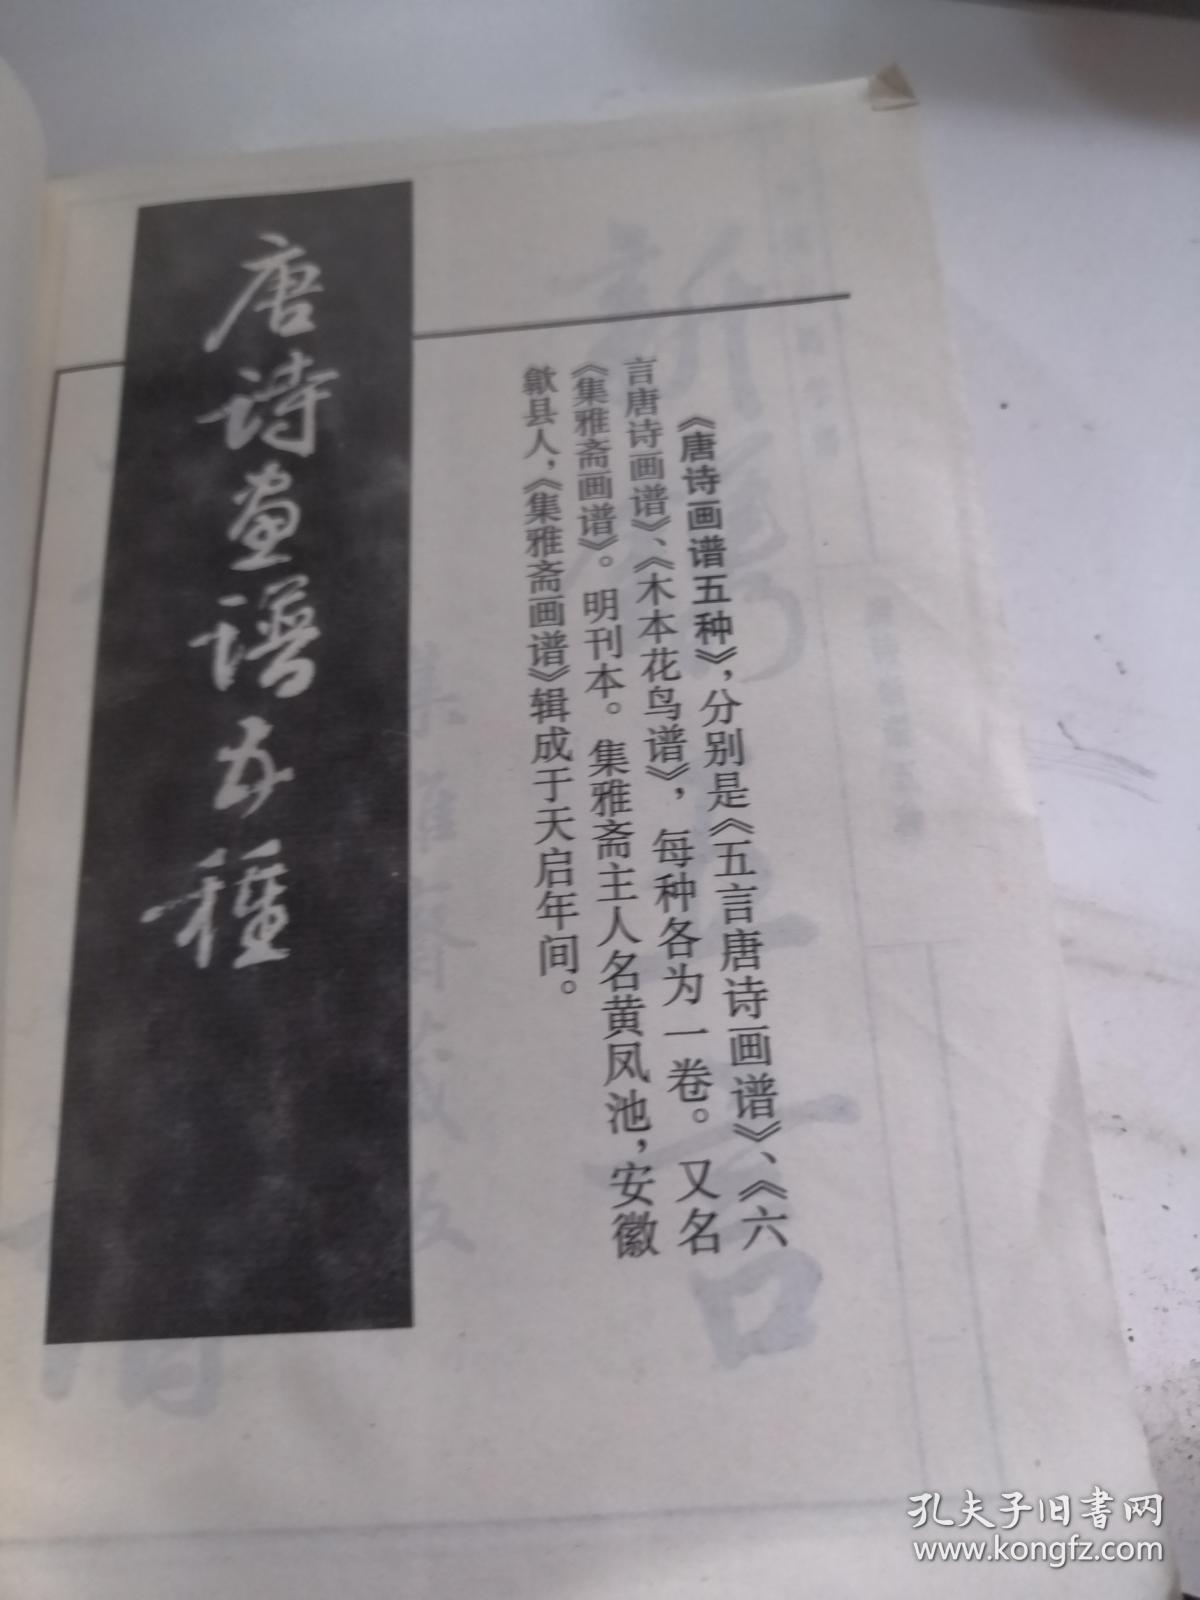 唐诗画谱五種
《唐诗画谱五种》，分别是《五言唐诗画谱》、《六
言唐诗画谱》、《木本花鸟谱》，每种各为一卷。又名
《集雅斋画谱》。明刊本。集雅斋主人名黄凤池，安徽
歙县人，《集雅斋画谱》辑成于天启年间。
孔夫子旧书网
www.kongfz.com